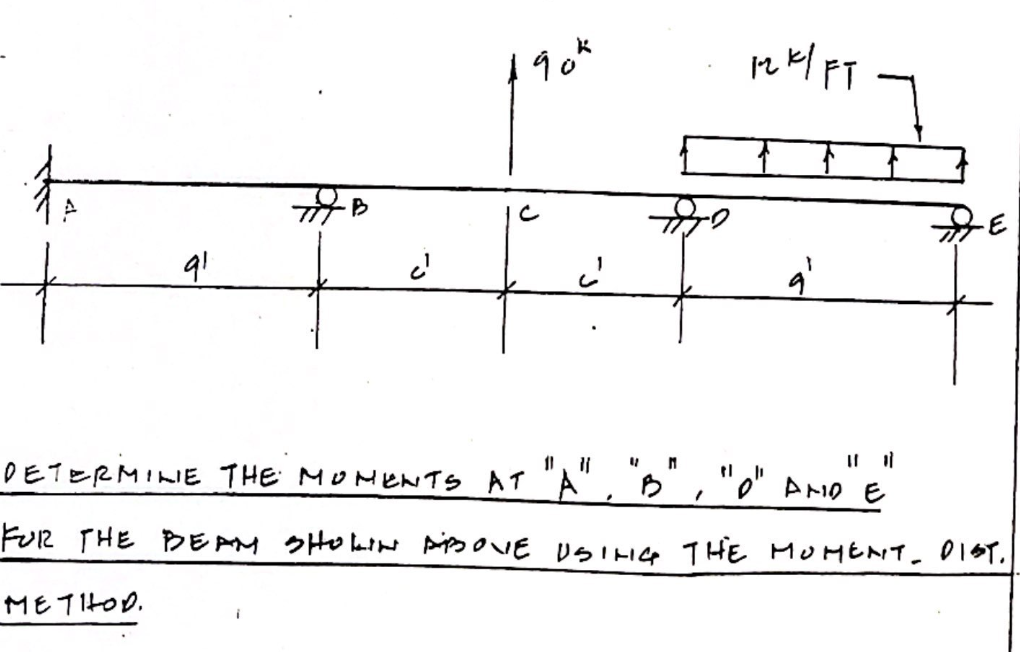 90ᵏ
12 ᵏ/FT
A
B
C
D
E
9'
6'
6'
9'
DETERMINE THE MOMENTS AT "A", "B", "D" AND "E"
FOR THE BEAM SHOWN ABOVE USING THE MOMENT. DIST.
METHOD.